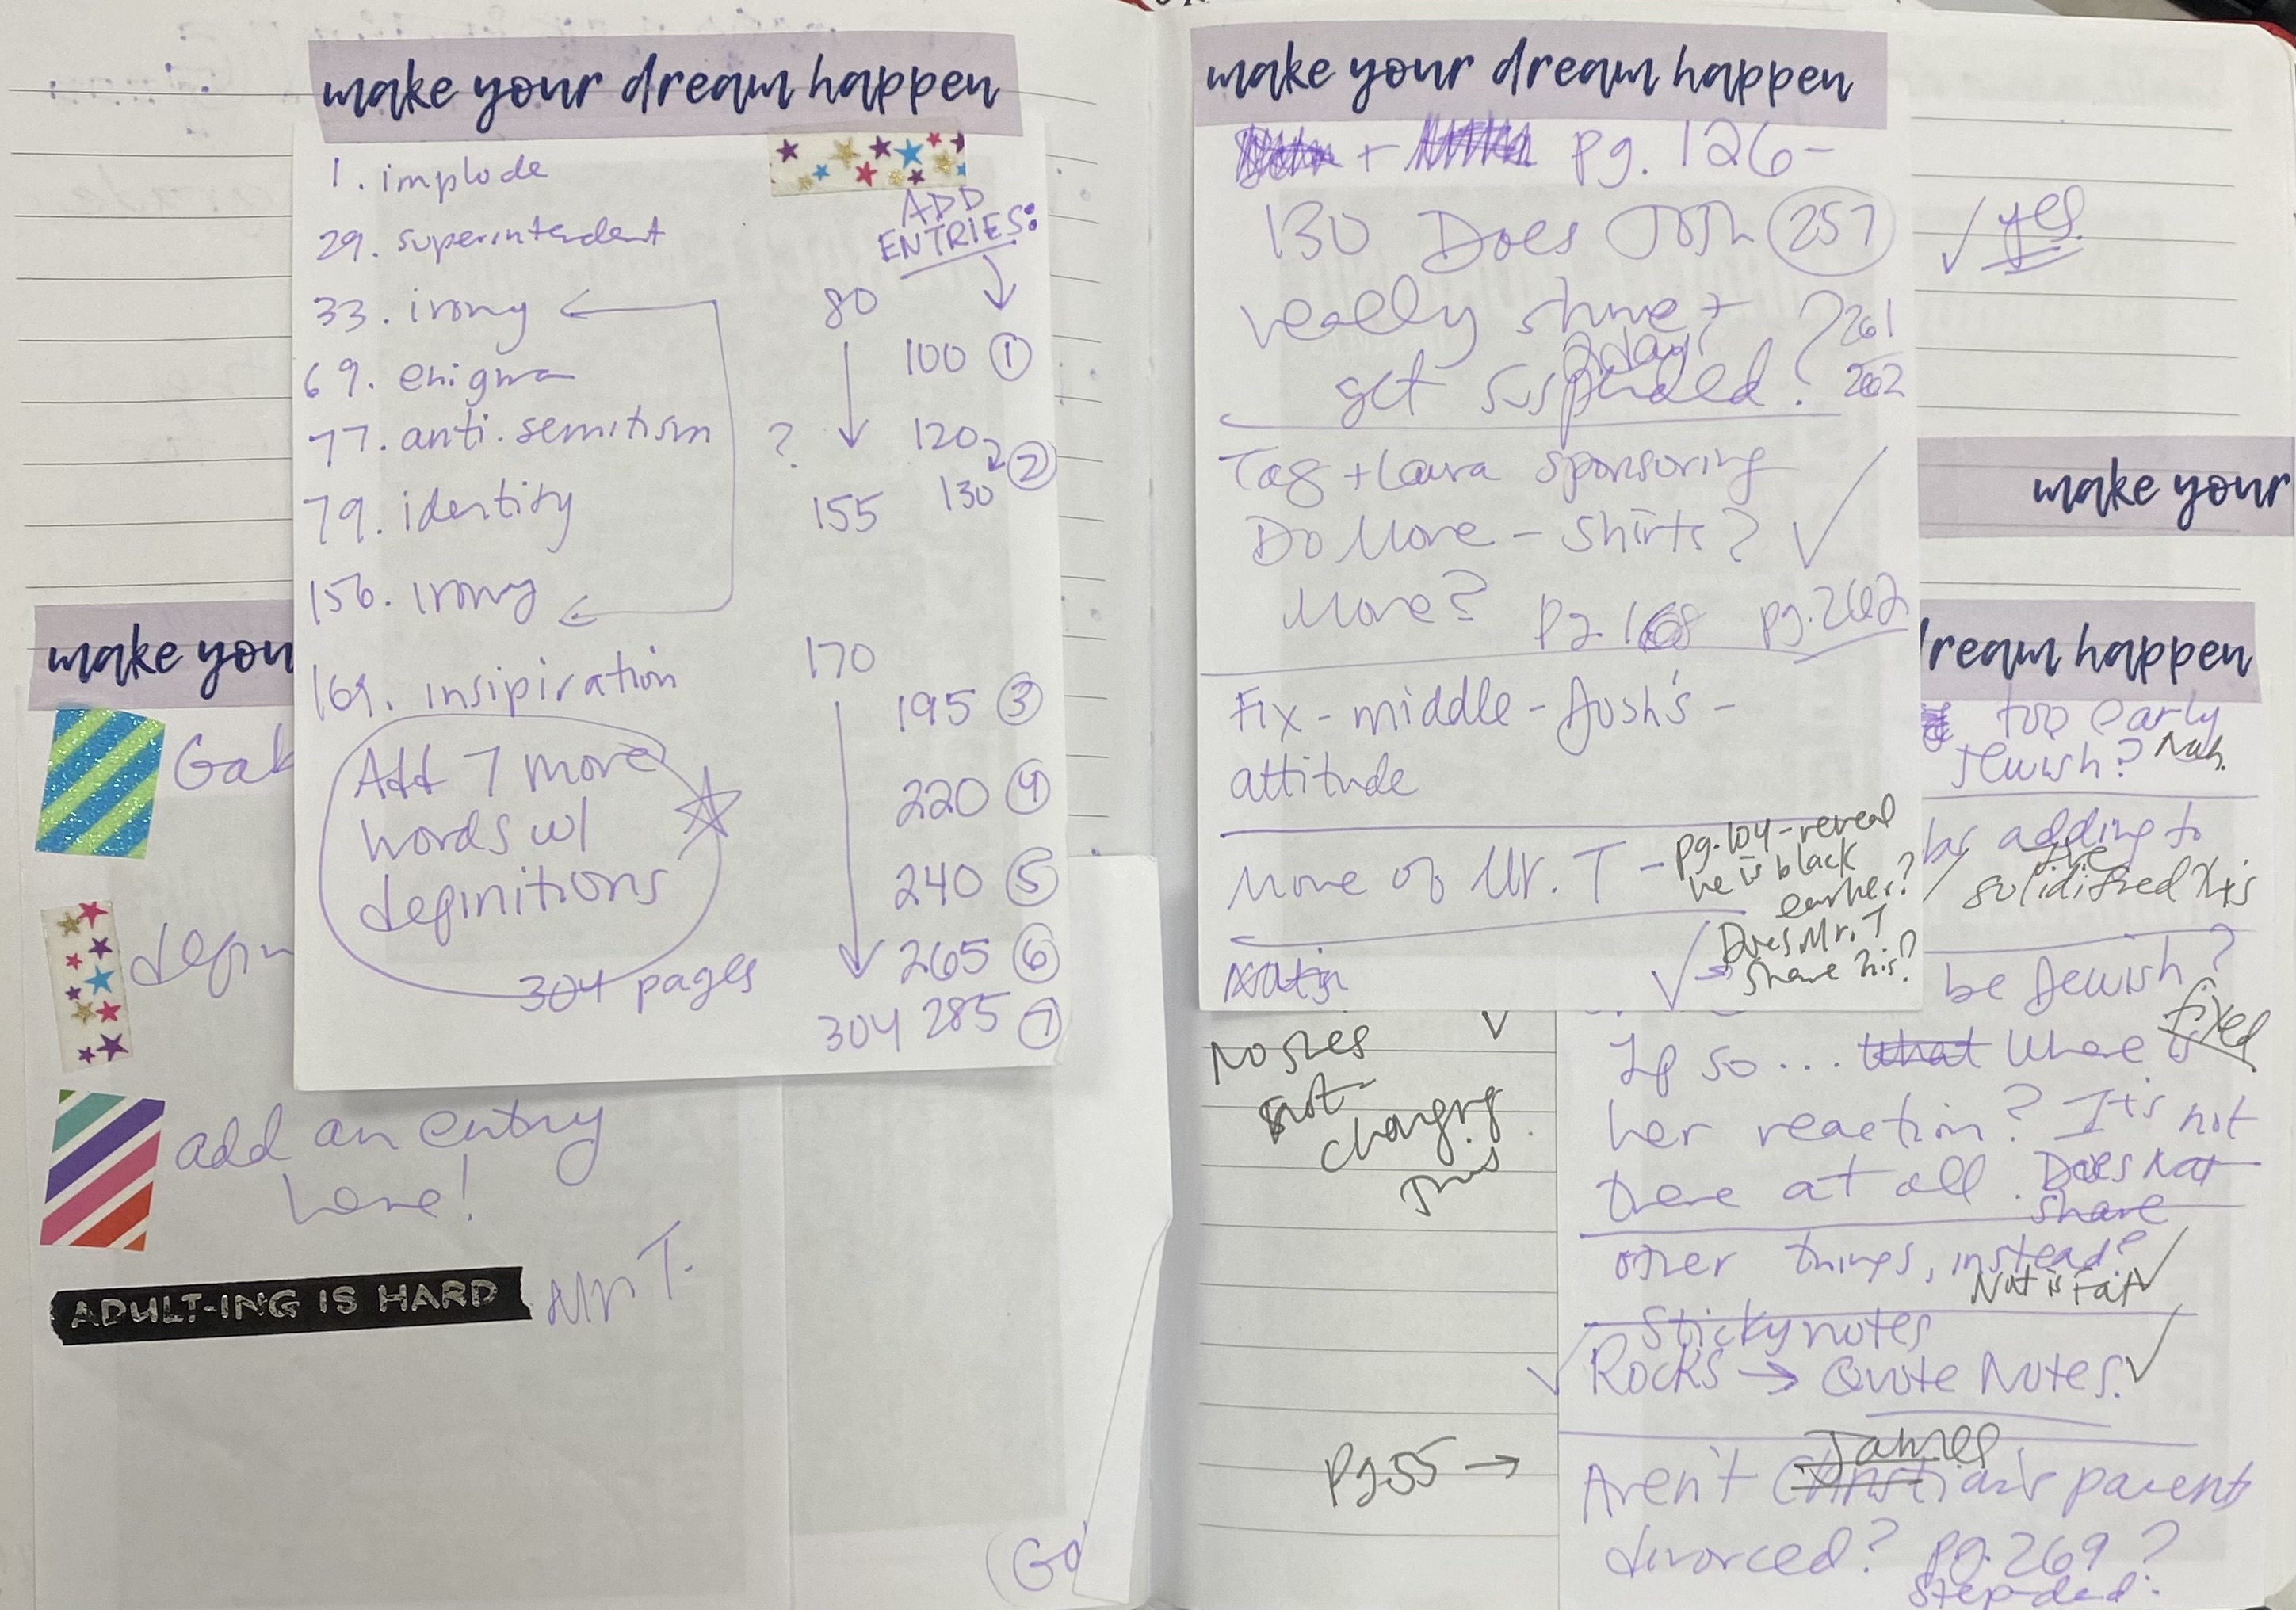 make your dream happen
1. implode
29. superintendent
33. irony
69. enigma
77. anti-semitism
79. identity
156. irony
169. insipiration
Add 7 more
words w/
definitions
304 pages
ADD
ENTRIES:
80
100 ①
? 120
130 ②
155
170
195 ③
220 ④
240 ⑤
265 ⑥
304 285 ⑦
make you
Gab
defin
add an entry
here!
ADULT-ING IS HARD
Mr. T.
(Go
make your dream happen
+ pg. 126-
130 Does Josh 257
really shine + ? 261
2 day?
get suspended? 262
✓ yes
Tag + Laura sponsoring
Do More - Shirts? ✓
More? pg. 168 pg. 262
Fix - middle - Josh's -
attitude
More of Mr. T - pg. 104 - reveal
he is black
earlier?
✓ → Does Mr. T
share his?
make your
dream happen
too early
Jewish? Nah.
adding to
the
solidified
be Jewish?
fixed
If so... what where is
her reaction? It's not
there at all. Does Nat
share
other things, instead?
Nat is fat ✓
No she's
not
changing
this
Sticky notes
✓ Rocks → Quote Notes. ✓
pg 55 →
James
Aren't Christian's parents
divorced? pg. 269?
step-dad.